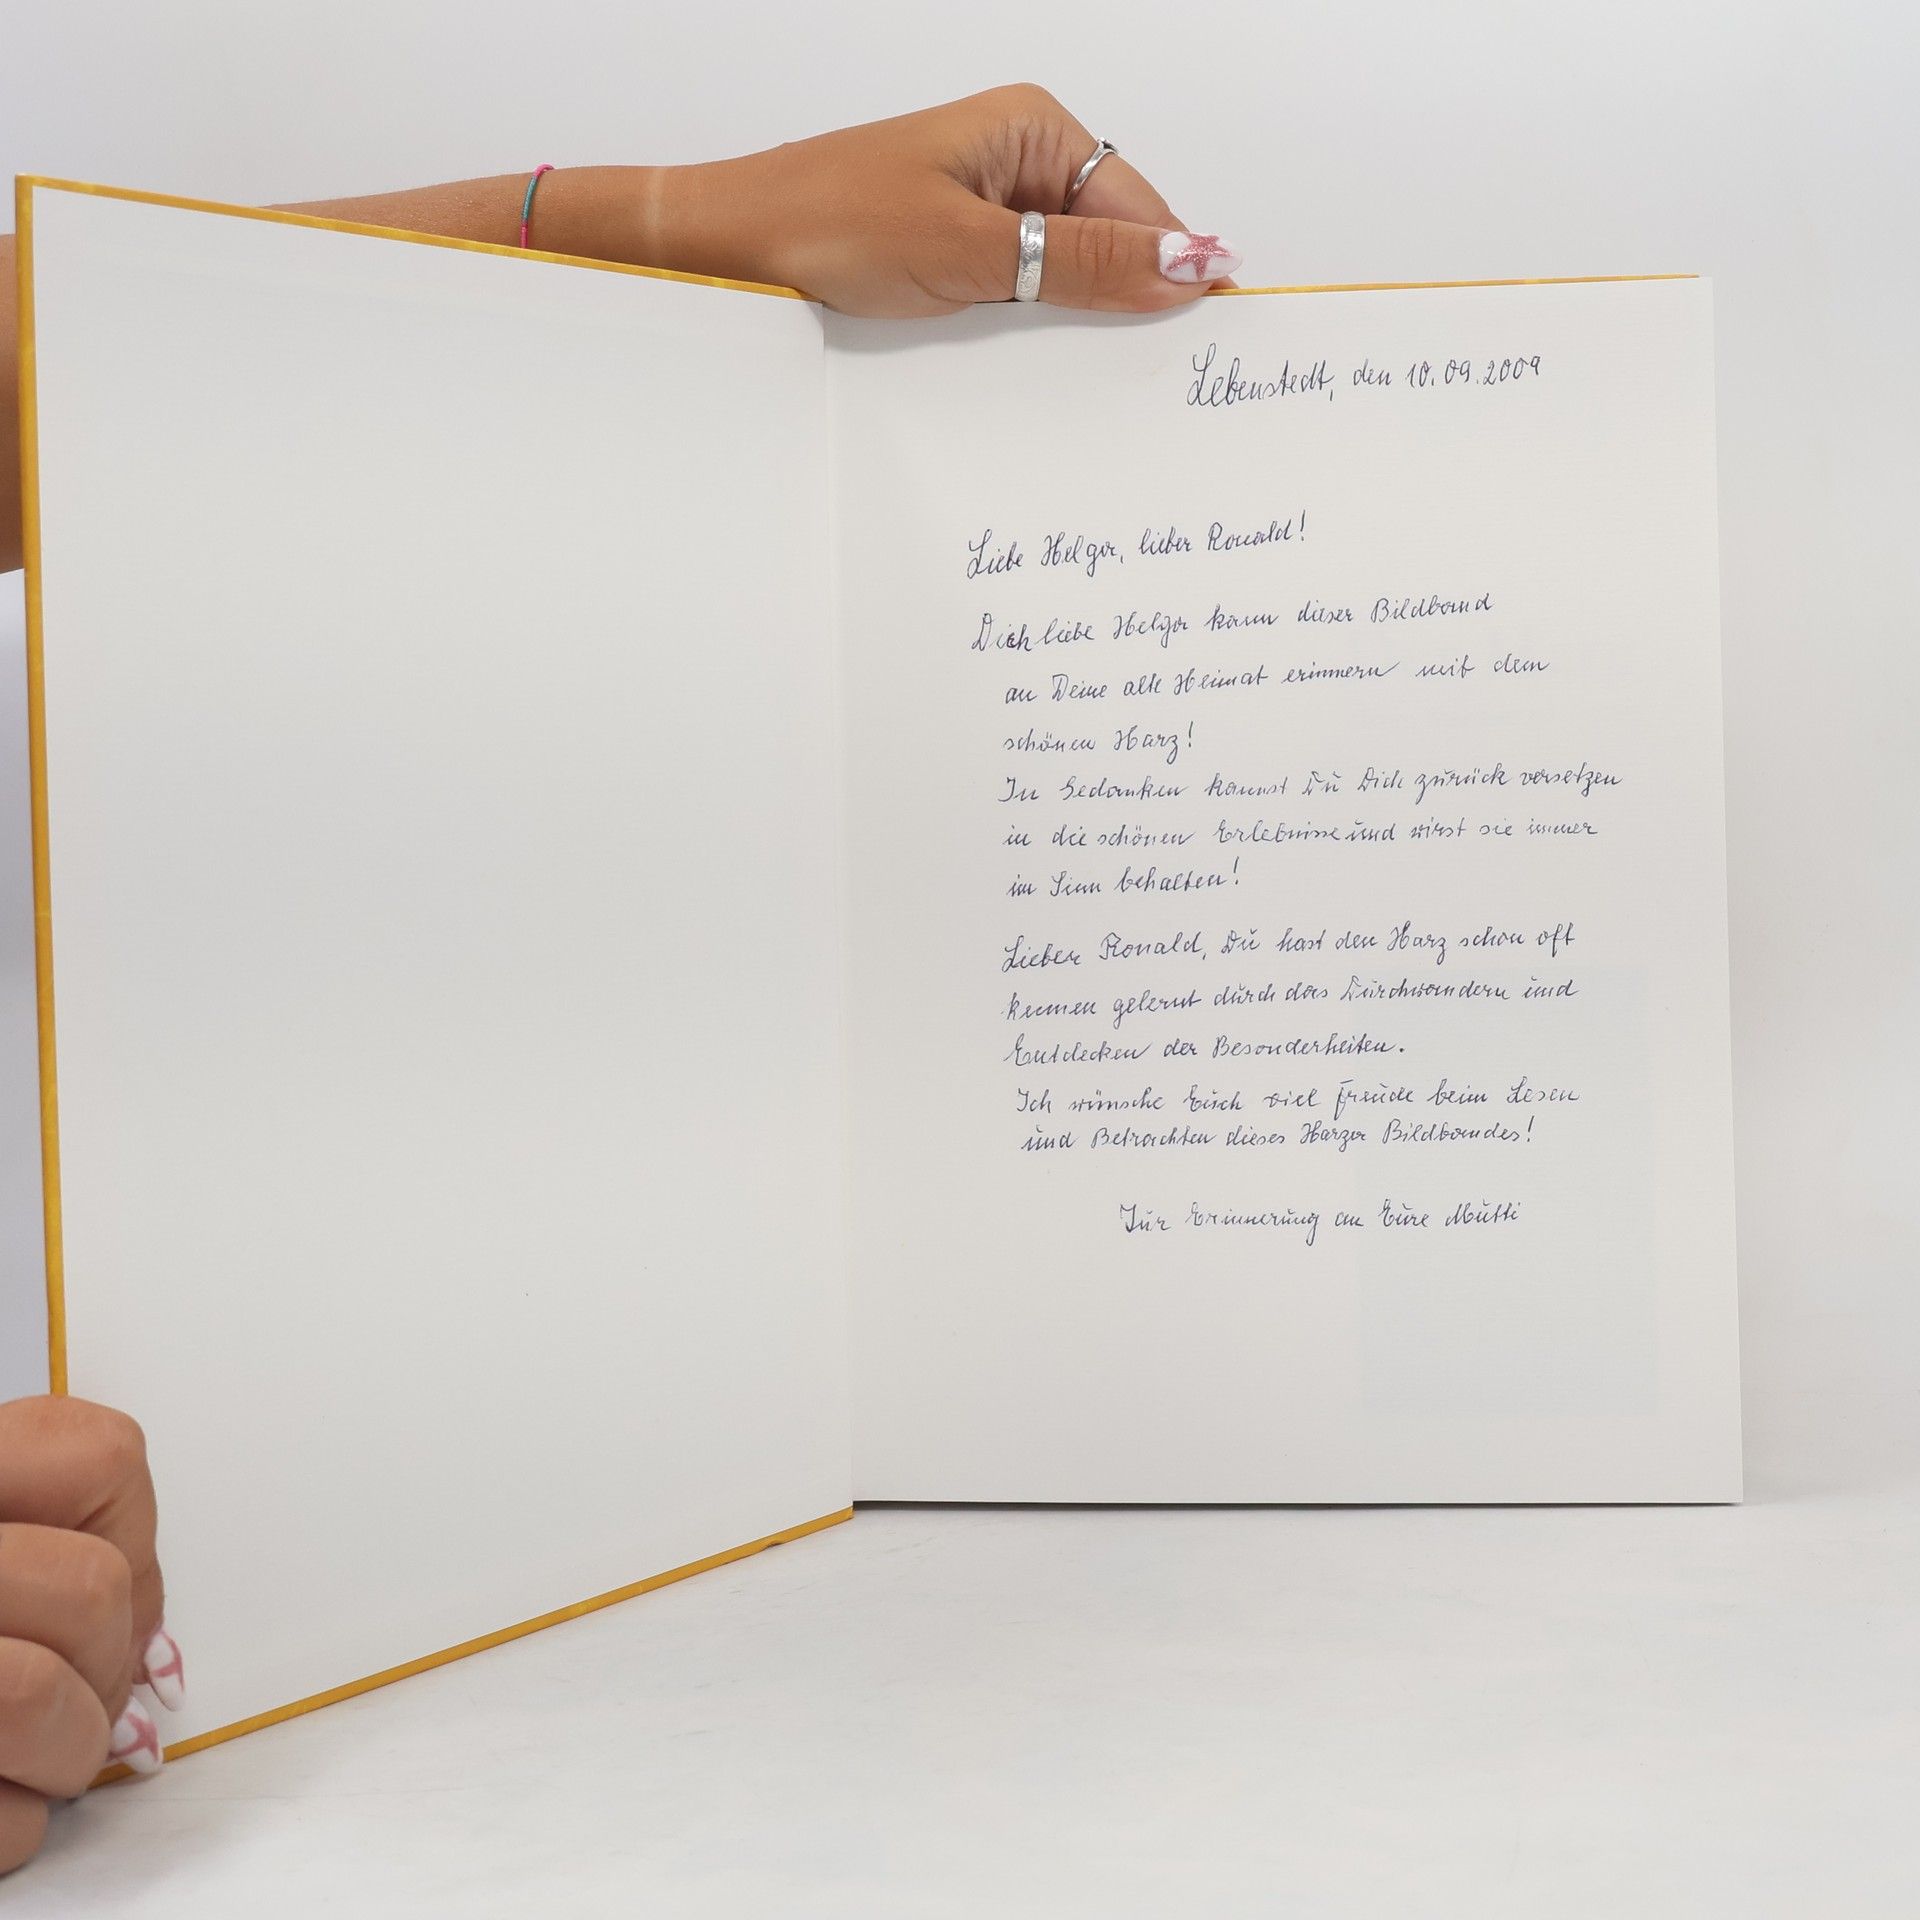 Lebenstedt, den 10.09.2009
Liebe Helga, lieber Ronald!
Dich liebe Helga kann dieser Bildband
an Deine alte Heimat erinnern mit dem
schönen Harz!
In Gedanken kannst Du Dich zurück versetzen
in die schönen Erlebnisse und wirst sie immer
im Sinn behalten!
Lieber Ronald, Du hast den Harz schon oft
kennen gelernt durch das Durchwandern und
Entdecken der Besonderheiten.
Ich wünsche Euch viel Freude beim Lesen
und Betrachten dieses Harzer Bildbandes!
Zur Erinnerung an Eure Mutti